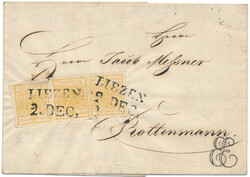 Herrn
Herrn Jacob Messner
LIEZEN
2. DEC.
LIEZEN
2. DEC.
Rottenmann.